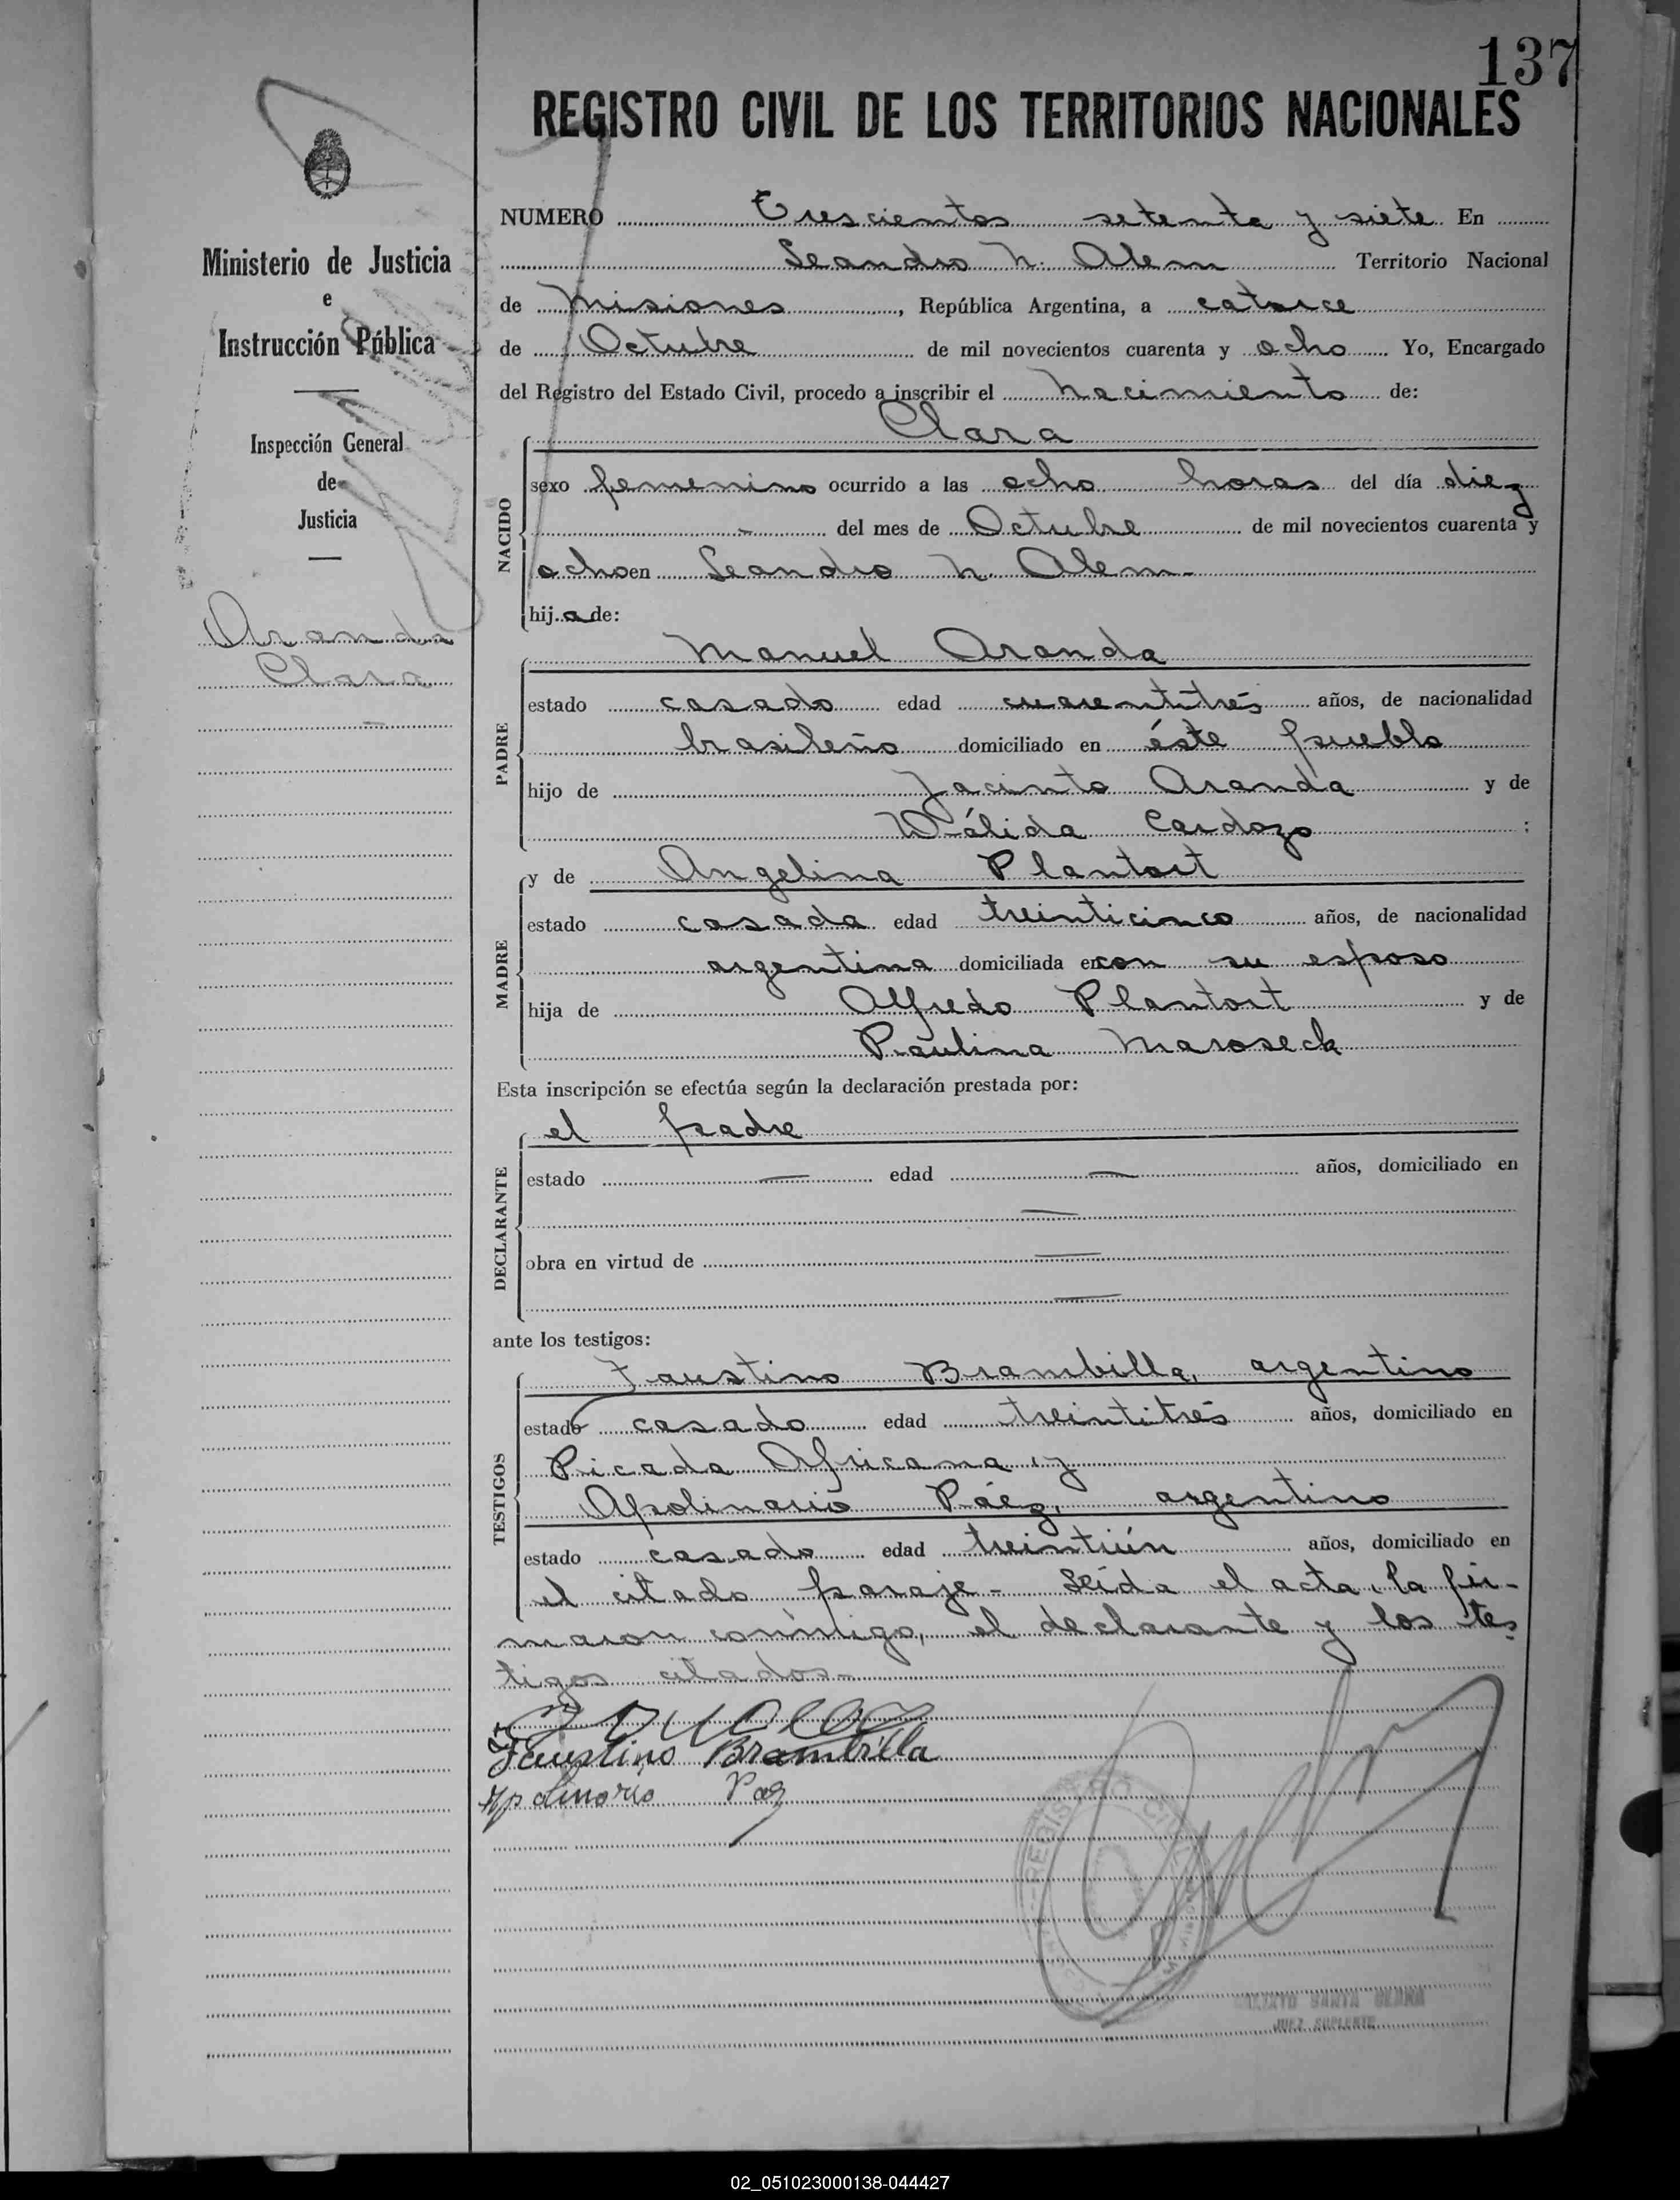 137
REGISTRO CIVIL DE LOS TERRITORIOS NACIONALES
Ministerio de Justicia
e
Instrucción Pública
Inspección General
de
Justicia
Aranda
Clara
NUMERO Trescientos setenta y siete En
Leandro N. Alem Territorio Nacional
de Misiones, República Argentina, a catorce
de Octubre de mil novecientos cuarenta y ocho Yo, Encargado
del Registro del Estado Civil, procedo a inscribir el Nacimiento de:
Clara
NACIDO
sexo femenino ocurrido a las ocho horas del día diez
del mes de Octubre de mil novecientos cuarenta y
ocho en Leandro N. Alem-
hija de:
Manuel Aranda
PADRE
estado casado edad cuarentitrés años, de nacionalidad
brasileño domiciliado en éste pueblo
hijo de Jacinto Aranda y de
Wálida Cardozo ;
y de Angelina Plantort
MADRE
estado casada edad treinticinco años, de nacionalidad
argentina domiciliada en con su esposo
hija de Alfredo Plantort y de
Paulina Maroseck
Esta inscripción se efectúa según la declaración prestada por:
el padre
DECLARANTE
estado — edad — años, domiciliado en
—
obra en virtud de —
—
ante los testigos:
Faustino Brambilla, argentino
TESTIGOS
estado casado edad treintitrés años, domiciliado en
Picada Africana y
Apolinario Páez, argentino
estado casado edad treintiún años, domiciliado en
el citado paraje- Leída el acta, la fir-
maron conmigo, el declarante y los tes
tigos citados-
Faustino Brambilla
Apolinario Paez
REGISTRO CIVIL
SANTA
JUEZ SUPLENTE
02_051023000138-044427